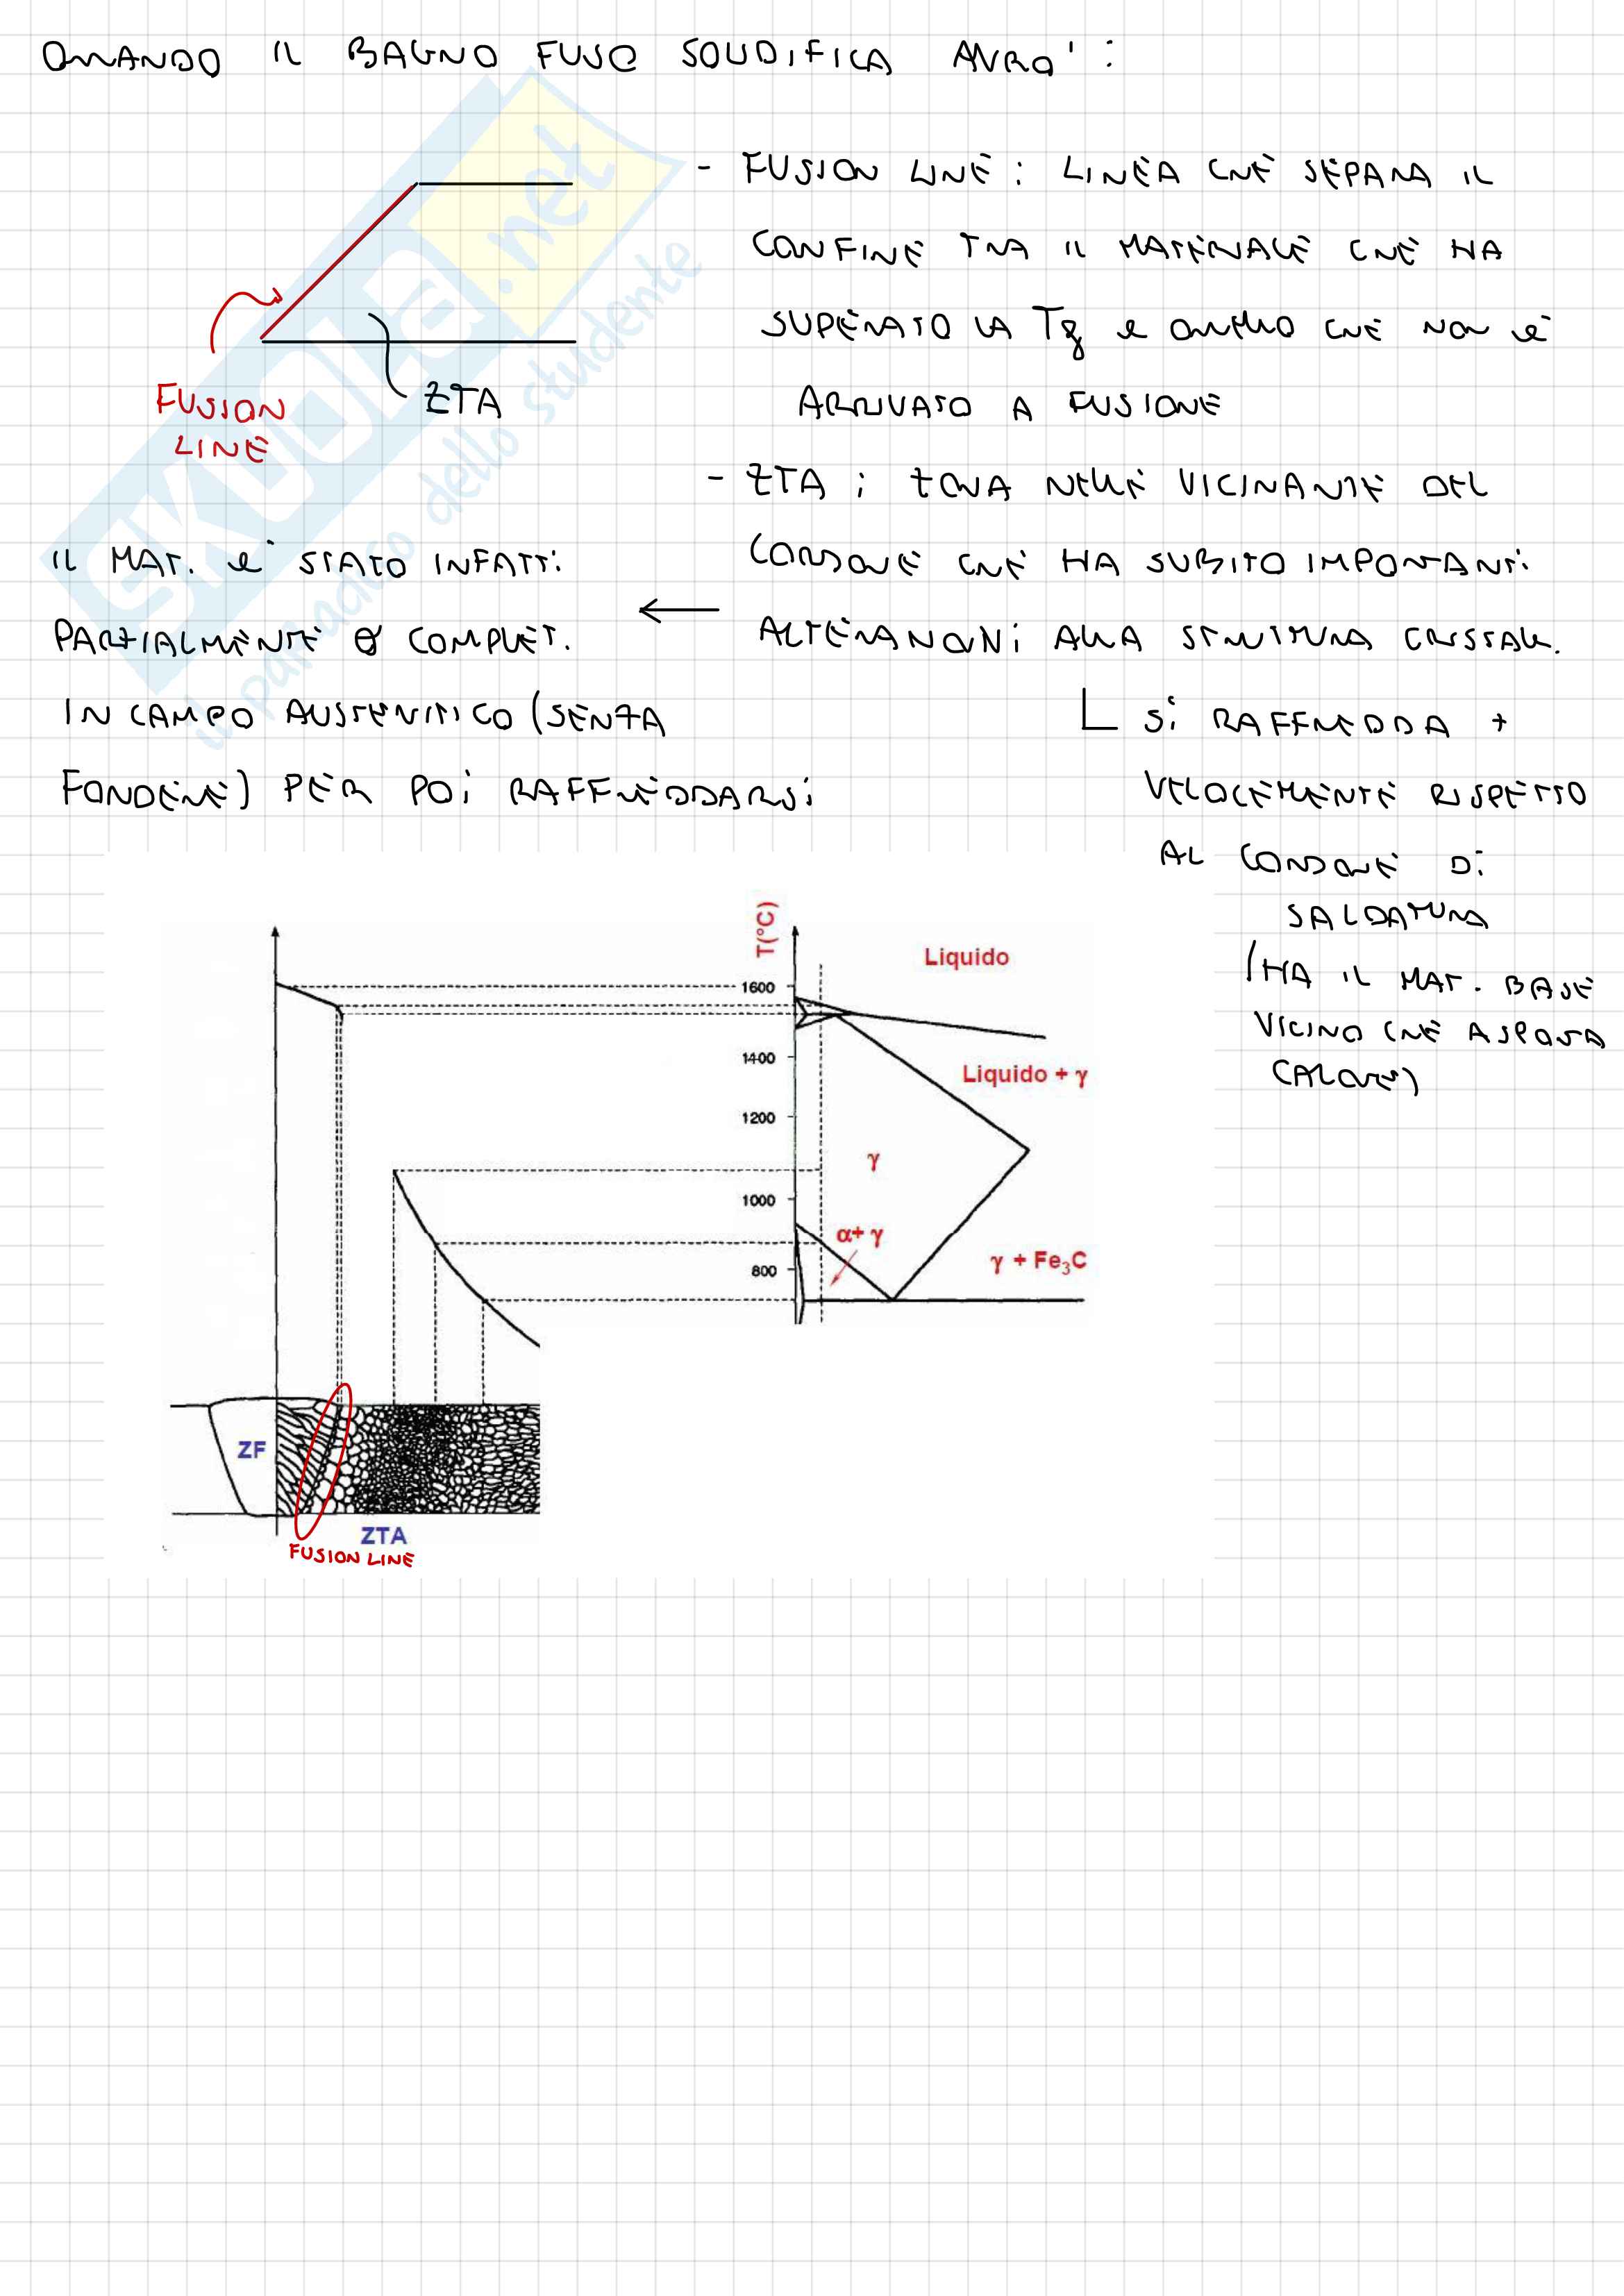 QUANDO IL BAGNO FUSO SOLIDIFICA AVRO':
- FUSION LINE: LINEA CHE SEPARA IL
CONFINE TRA IL MATERIALE CHE HA
SUPERATO LA Tf e QUELLO CHE NON e'
ARRIVATO A FUSIONE
FUSION
LINE
ZTA
- ZTA: ZONA NELLE VICINANZE DEL
CORDONE CHE HA SUBITO IMPORTANTI
ALTERAZIONI ALLA STRUTTURA CRISTALL.
IL MAT. e' STATO INFATTI
PARZIALMENTE O COMPLET.
IN CAMPO AUSTENITICO (SENZA
FONDERE) PER POI RAFFREDDARSI
SI RAFFREDDA +
VELOCEMENTE RISPETTO
AL CORDONE DI
SALDATURA
(HA IL MAT. BASE
VICINO CHE ASPORTA
CALORE)
T(°C)
Liquido
1600
1400
Liquido + γ
1200
γ
1000
α+ γ
γ + Fe₃C
800
ZF
ZTA
FUSION LINE
SKUOLA.net
il paradiso dello studente